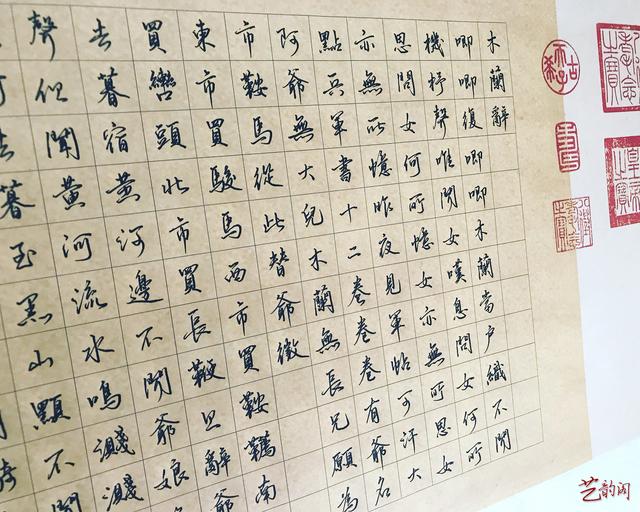 木蘭辭
唧唧復唧唧木蘭當户織不聞
機杼聲唯聞女嘆息問女何所
思問女何所憶女亦無所思女
亦無所憶昨夜見軍帖可汗大
點兵軍書十二卷卷卷有爺名
阿爺無大兒木蘭無長兄願為
市鞍馬從此替爺徵
東市買駿馬西市買鞍韉南
買轡頭北市買長鞭旦辭爺
去暮宿黃河邊不聞爺娘
聲但聞黃河流水鳴濺濺
去暮至黑山顥不聞
艺韵阁